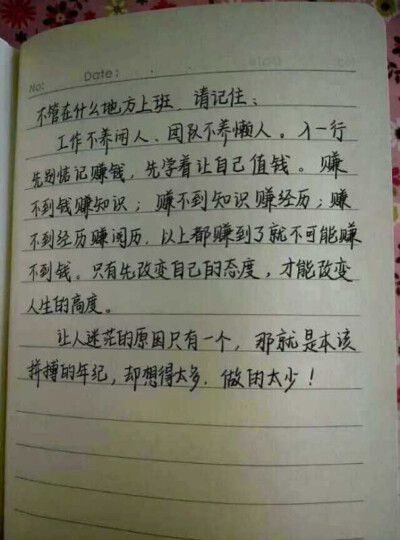 No:
Date:
不管在什么地方上班,请记住:
工作不养闲人、团队不养懒人。入一行
先别惦记赚钱,先学着让自己值钱。赚
不到钱赚知识;赚不到知识赚经历;赚
不到经历赚阅历.以上都赚到了就不可能赚
不到钱。只有先改变自己的态度,才能改变
人生的高度。
让人迷茫的原因只有一个,那就是本该
拼搏的年纪,却想得太多.做的太少!